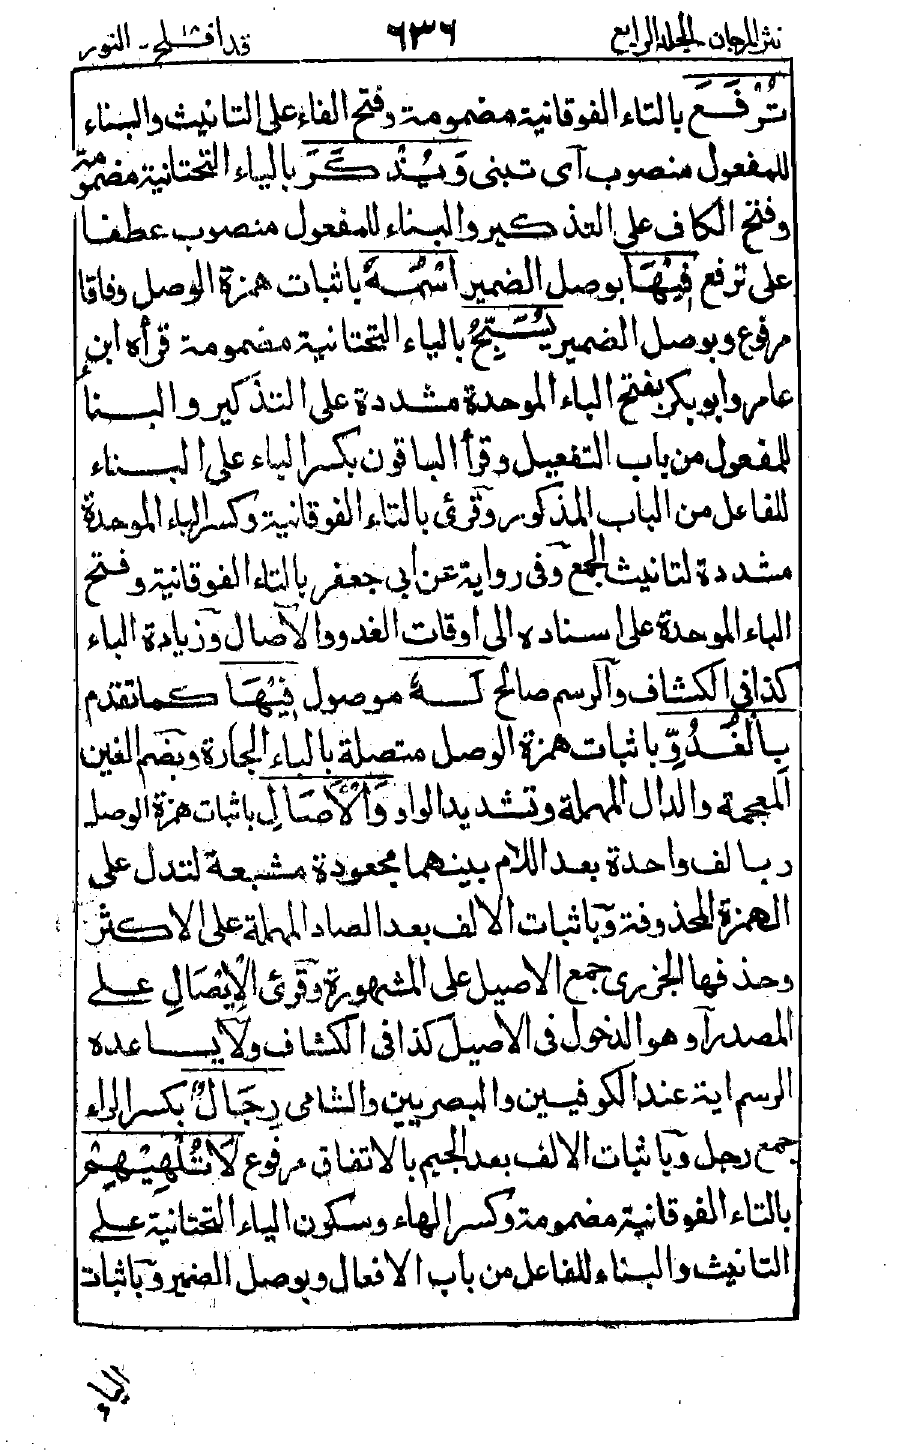 نثر المرجان المجلد الرابع ٦٣٦ قد افلح ١٨ - النور
تُرْفَعَ بالتاء الفوقانية مضمومة وفتح الفاء على التانيث والبناء
للمفعول منصوب آى تبنى وَيُذْكَرَ بالياء التحتانية مضمومة
وفتح الكاف على التذكير والبناء للمفعول منصوب عطفا
على ترفع فِيْهَا بوصل الضمير اسْمُهٗ باثبات همزة الوصل وفاقا
مرفوع وبوصل الضمير يُسَبِّحُ بالياء التحتانية مضمومة قرأه ابن
عامر وابو بكر بفتح الباء الموحدة مشددة على التذكير والبنا
للمفعول من باب التفعيل وقرأ الباقون بكسر الباء على البناء
للفاعل من الباب المذكور وقرئ بالتاء الفوقانية وكسر الباء الموحدة
مشددة لتانيث الجمع وفى رواية عن ابى جعفر بالتاء الفوقانية وفتح
الباء الموحدة على اسناده الى اوقات الغدو والآصال وزيادة الباء
كذا فى الكشاف والرسم صالح لَهٗ موصول فِيْهَا كما تقدم
بِالْغُدُوِّ باثبات همزة الوصل متصلة بالباء الجارة وبضم الغين
المعجمة والدال المهملة وتشديد الواو وَالْاٰصَالِ باثبات همزة الوصل
وبالف واحدة بعد اللام بينهما مجعودة مشبعة لتدل على
الهمزة المحذوفة وباثبات الالف بعد الصاد المهملة على الاكثر
وحذفها الجزرى جمع الاصيل على المشهورة وقرئ الْاِيْصَالِ على
المصدر آو هو الدخول فى الاصيل كذا فى الكشاف ولا يساعده
الرسم اية عند الكوفيين والبصريين والشامى رِجَالٌ بكسر الراء
جمع رجل وباثبات الالف بعد الجيم بالاتفاق مرفوع لَا تُلْهِيْهِمْ
بالتاء الفوقانية مضمومة وكسر الهاء وسكون الياء التحتانية على
التانيث والبناء للفاعل من باب الافعال وبوصل الضمير وباثبات
الياء